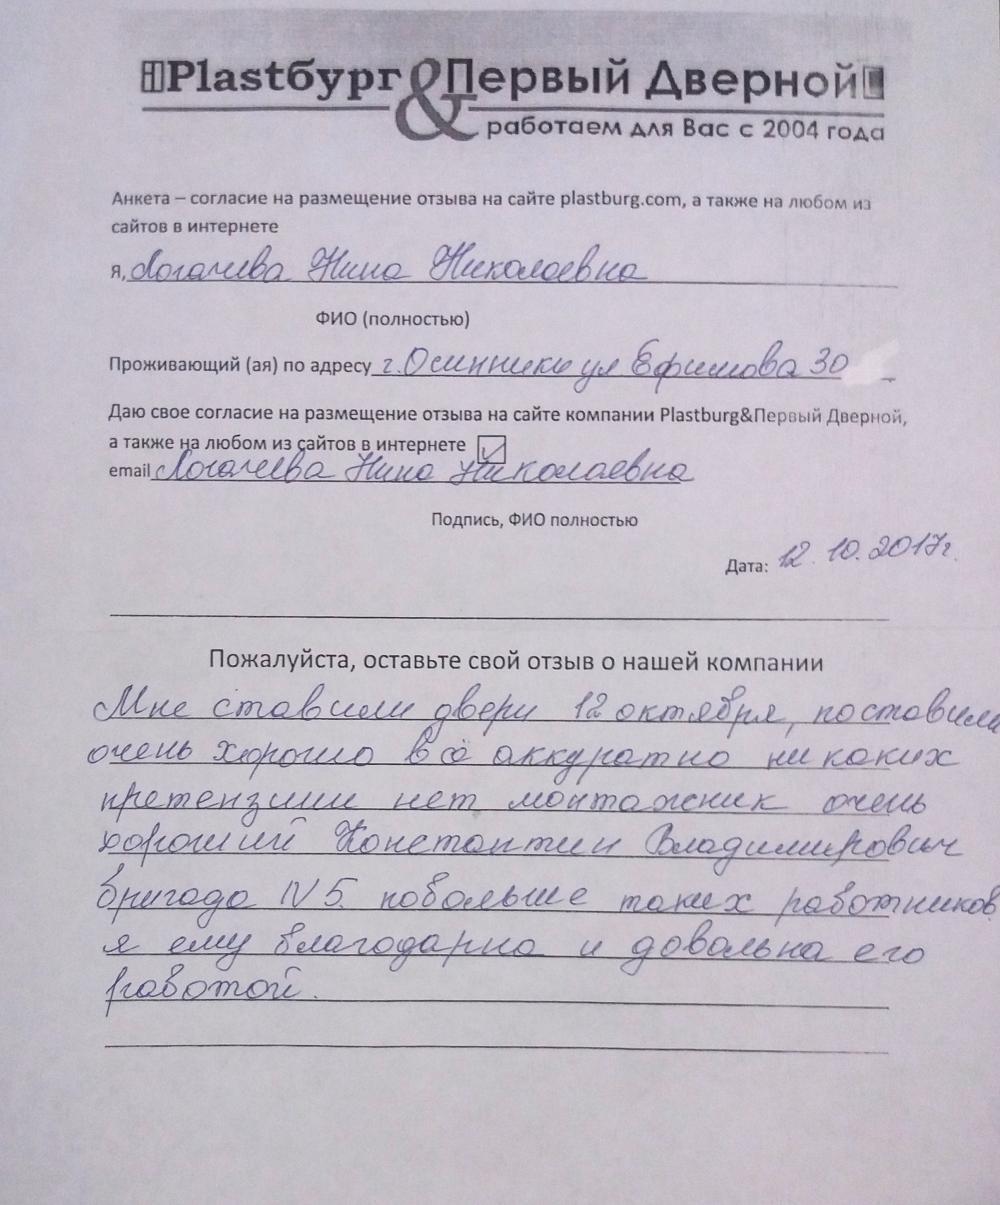 Plastбург & Первый Дверной
работаем для Вас с 2004 года
Анкета – согласие на размещение отзыва на сайте plastburg.com, а также на любом из
сайтов в интернете
Я, Логачева Нина Николаевна
ФИО (полностью)
Проживающий (ая) по адресу г. Осинники ул Ефимова 30
Даю свое согласие на размещение отзыва на сайте компании Plastburg&Первый Дверной,
а также на любом из сайтов в интернете
email Логачева Нина Николаевна
Подпись, ФИО полностью
Дата: 12. 10. 2017г.
Пожалуйста, оставьте свой отзыв о нашей компании
Мне ставили двери 12 октября, поставили
очень хорошо всё аккуратно ни каких
претензиии нет монтажник очень
хороший Константин Владимирович
бригада N 5. побольше таких работников
я ему благодарна и довольна его
работой.